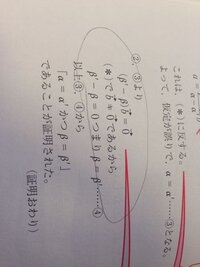 これは、(*)に反する。
よって、仮定が誤りで、α = α' ……③となる。
②, ③より
(β' − β)b⃗ = 0⃗
(*)で b⃗ ≠ 0⃗ であるから
β' − β = 0 つまり β = β' ……④
以上③, ④から
「α = α' かつ β = β'」
であることが証明された。
(証明おわり)